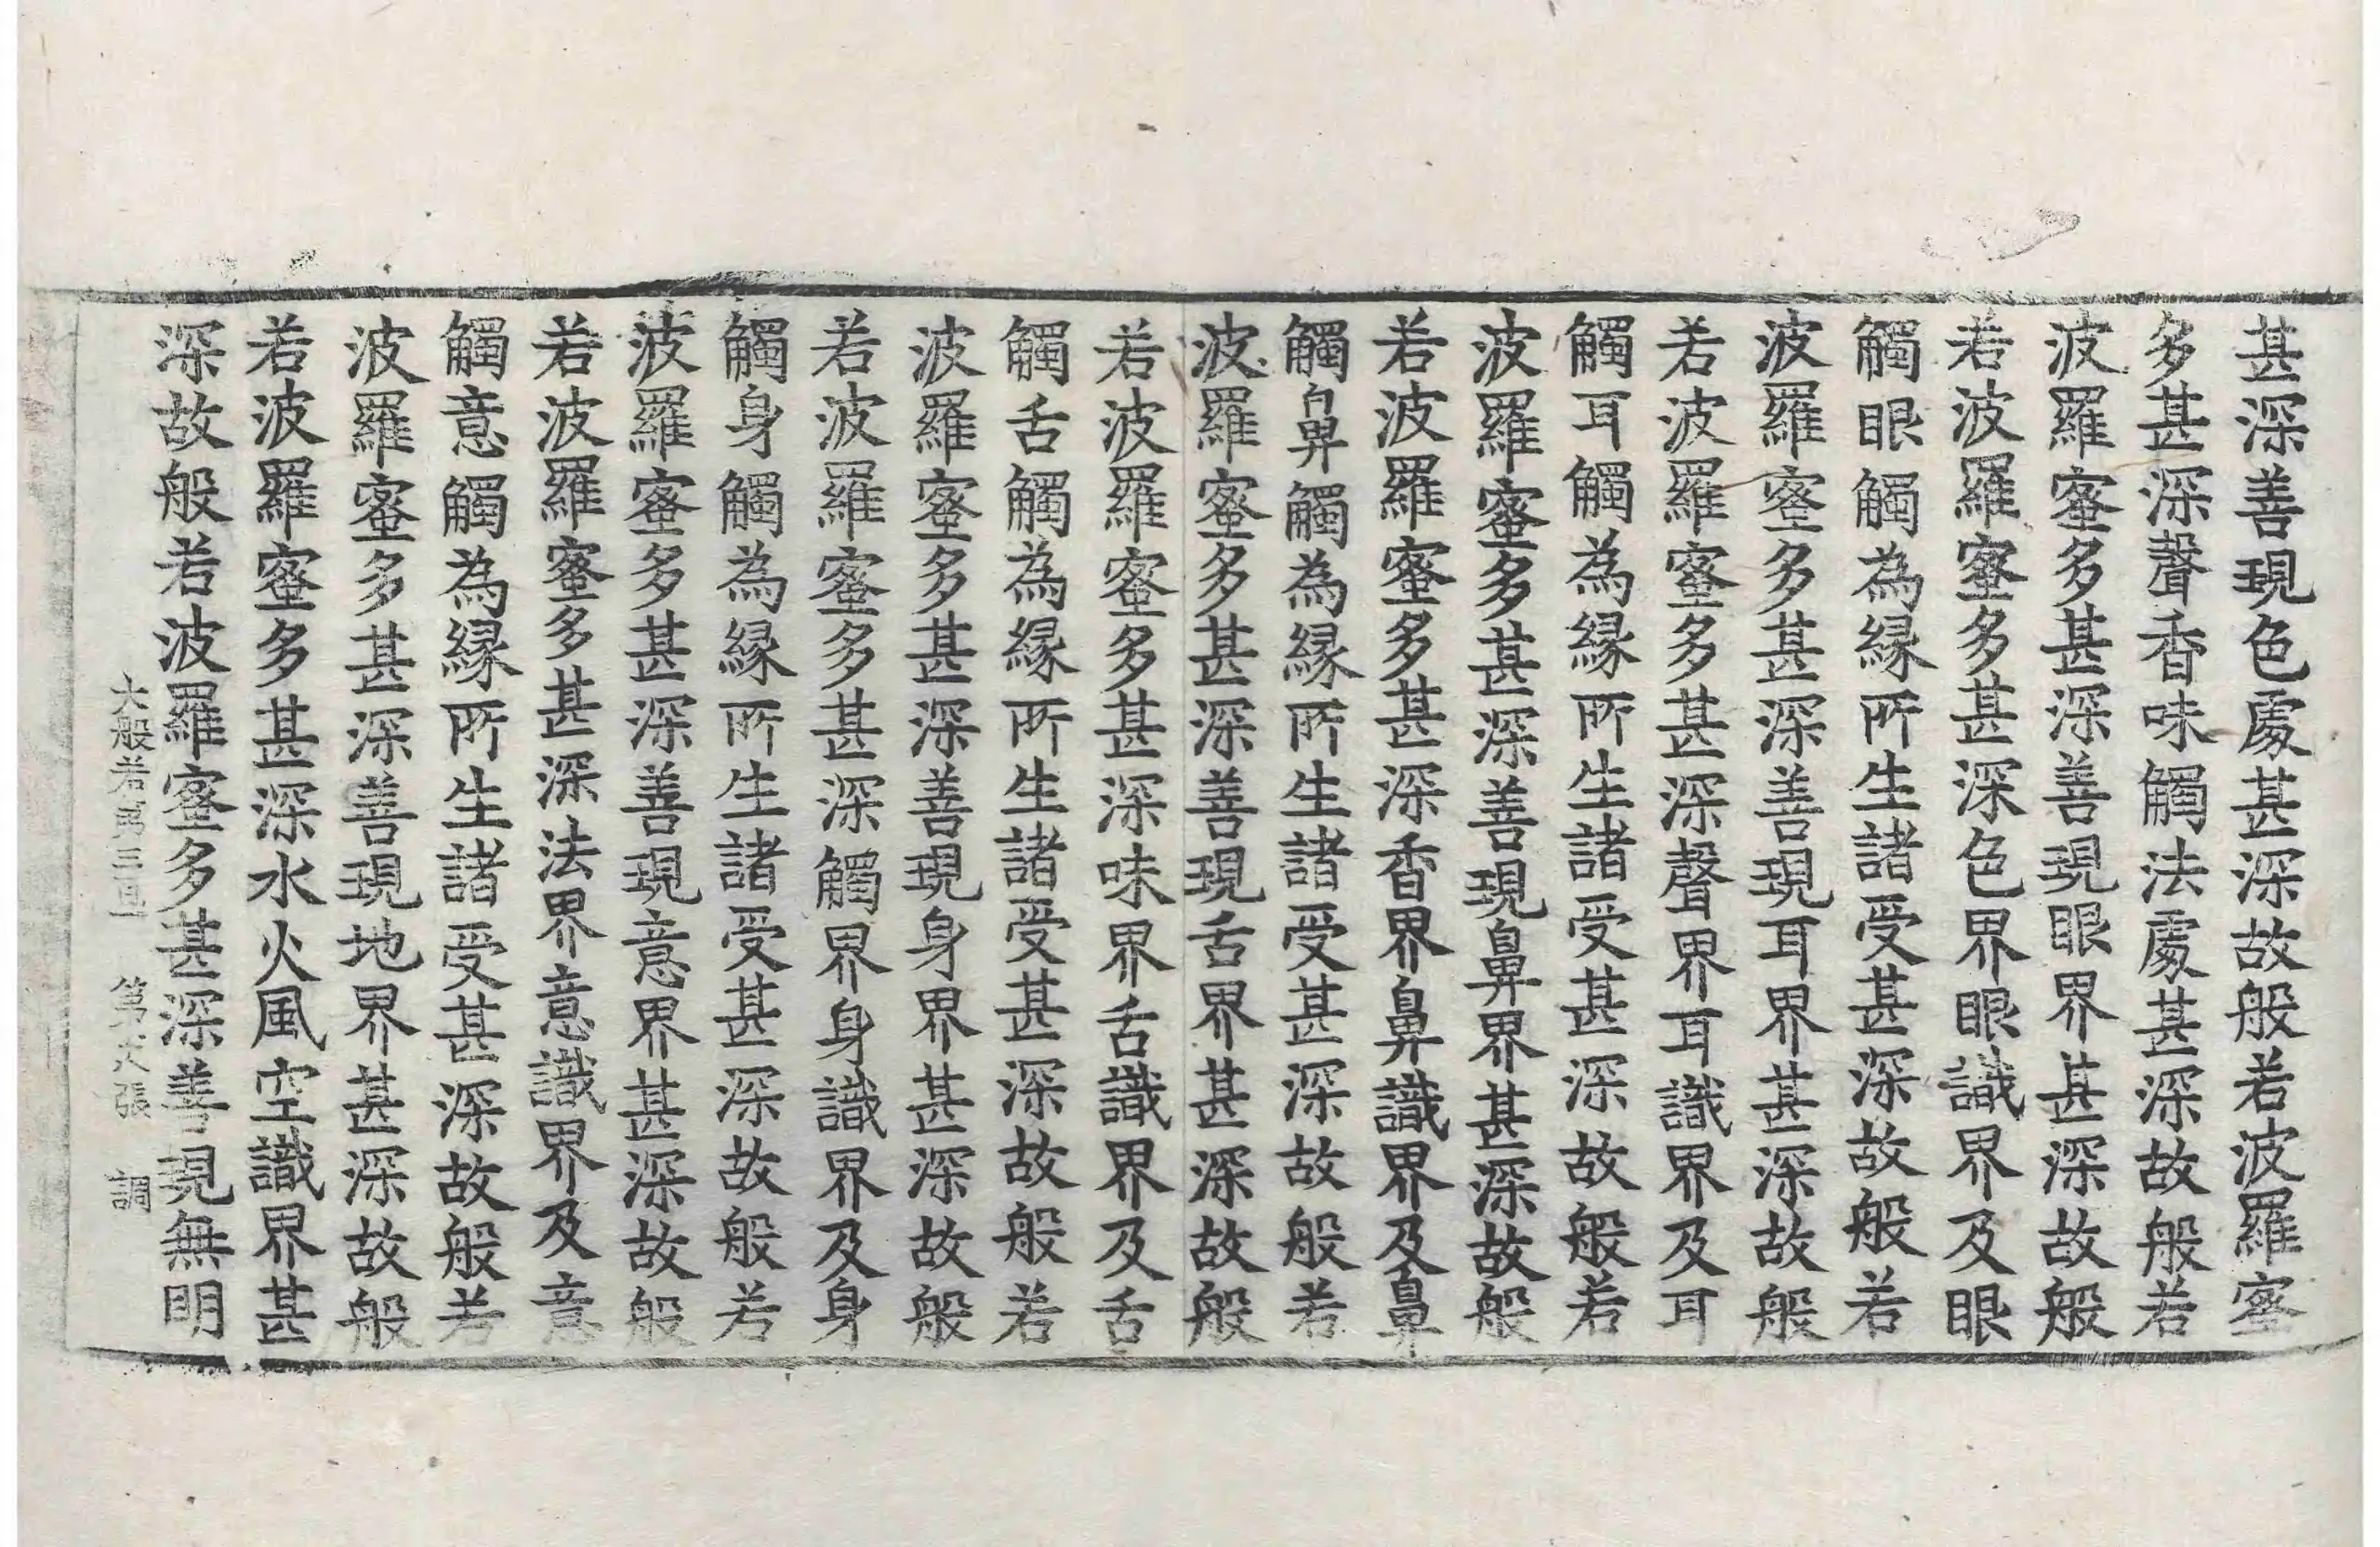 甚深善現色處甚深故般若波羅蜜
多甚深聲香味觸法處甚深故般若
波羅蜜多甚深善現眼界甚深故般
若波羅蜜多甚深色界眼識界及眼
觸眼觸為緣所生諸受甚深故般若
波羅蜜多甚深善現耳界甚深故般
若波羅蜜多甚深聲界耳識界及耳
觸耳觸為緣所生諸受甚深故般若
波羅蜜多甚深善現鼻界甚深故般
若波羅蜜多甚深香界鼻識界及鼻
觸鼻觸為緣所生諸受甚深故般若
波羅蜜多甚深善現舌界甚深故般
若波羅蜜多甚深味界舌識界及舌
觸舌觸為緣所生諸受甚深故般若
波羅蜜多甚深善現身界甚深故般
若波羅蜜多甚深觸界身識界及身
觸身觸為緣所生諸受甚深故般若
波羅蜜多甚深善現意界甚深故般
若波羅蜜多甚深法界意識界及意
觸意觸為緣所生諸受甚深故般若
波羅蜜多甚深善現地界甚深故般
若波羅蜜多甚深水火風空識界甚
深故般若波羅蜜多甚深善現無明
大般若 三 第 張 調